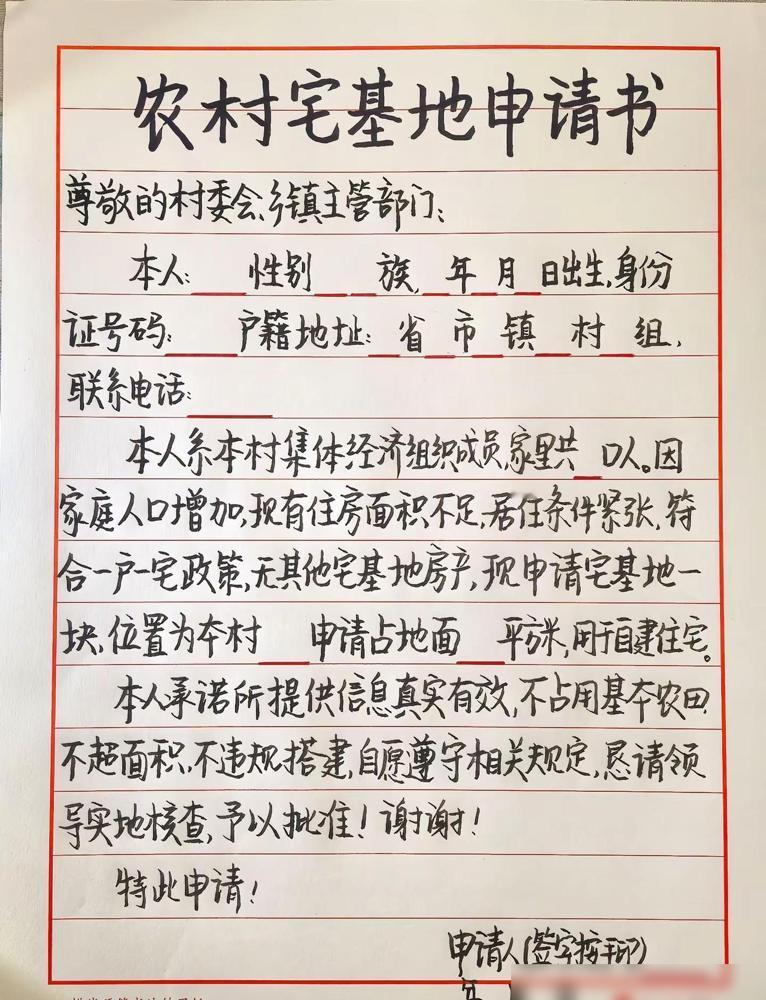 农村宅基地申请书
尊敬的村委会、乡镇主管部门:
本人:___性别__族,_年_月_日出生,身份
证号码:____户籍地址:_省_市_镇_村_组,
联系电话:_____
本人系本村集体经济组织成员,家里共_口人。因
家庭人口增加,现有住房面积不足,居住条件紧张,符
合一户一宅政策,无其他宅基地房产,现申请宅基地一
块,位置为本村___申请占地面___平方米,用于自建住宅。
本人承诺所提供信息真实有效,不占用基本农田,
不超面积,不违规搭建,自愿遵守相关规定,恳请领
导实地核查,予以批准!谢谢!
特此申请!
申请人(签字按手印)